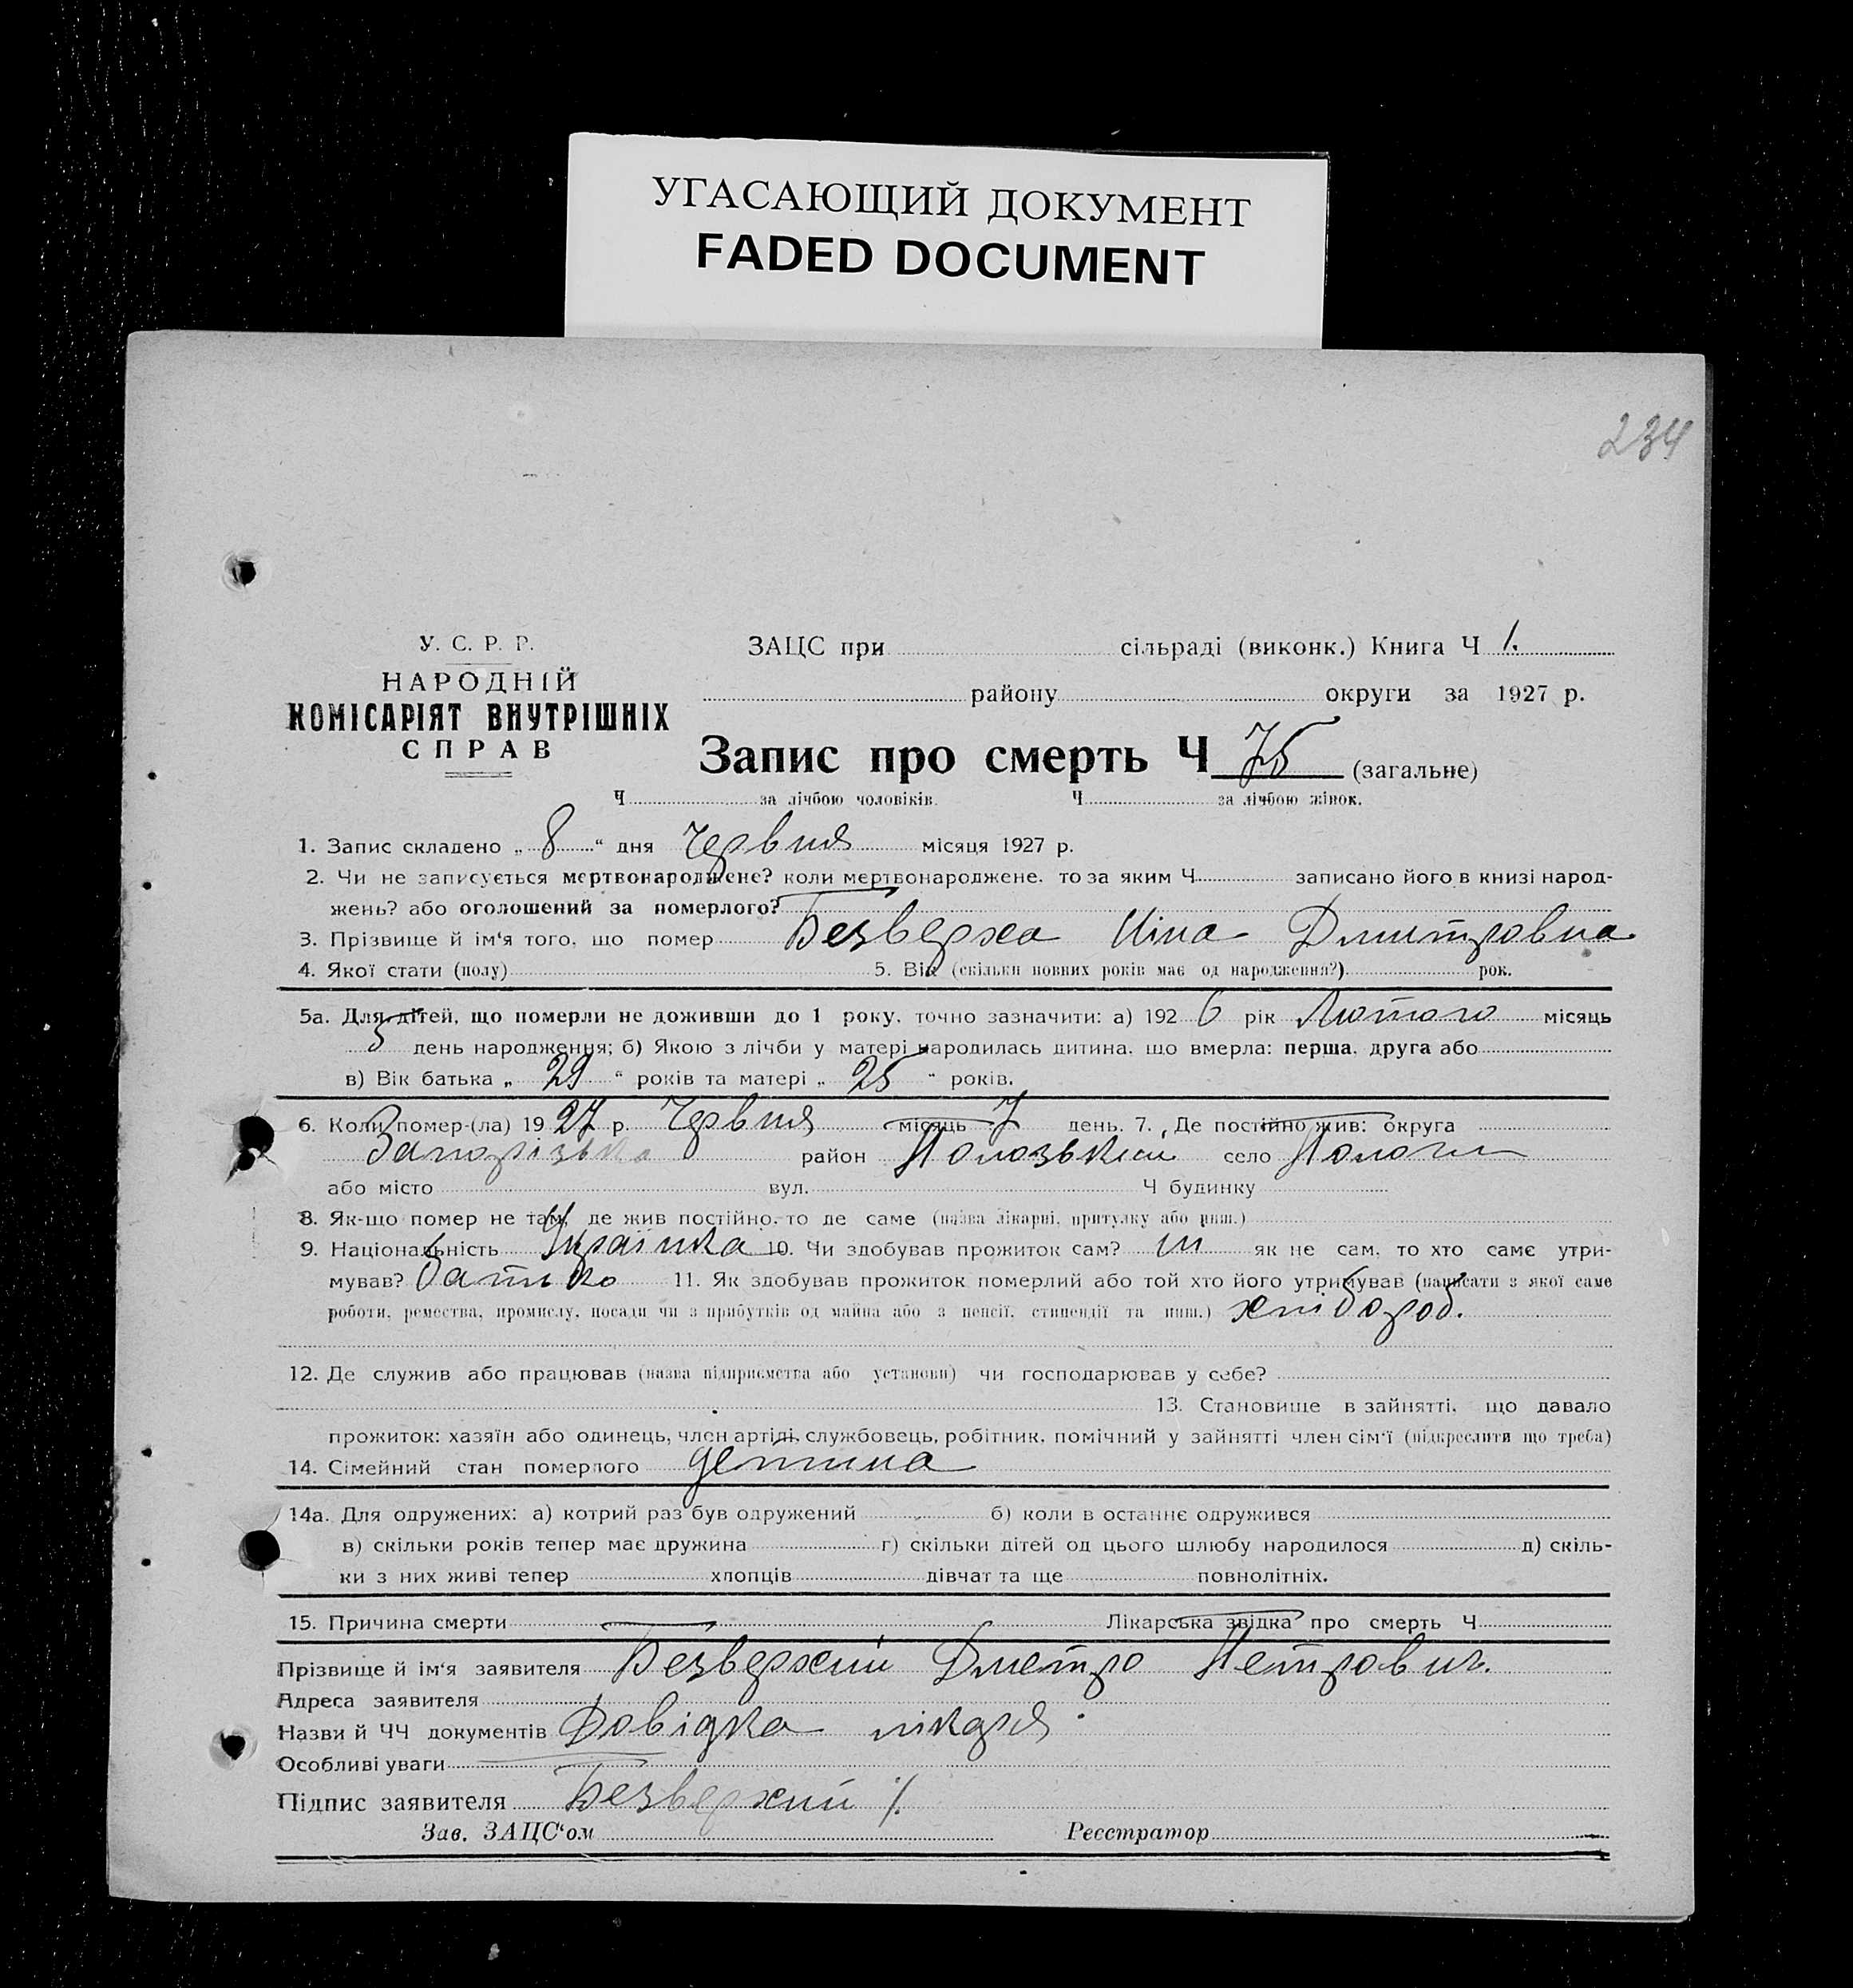 УГАСАЮЩИЙ ДОКУМЕНТ
FADED DOCUMENT
234
У. С. Р. Р.
НАРОДНІЙ
КОМІСАРІЯТ ВНУТРІШНІХ
СПРАВ
ЗАЦС при сільраді (виконк.) Книга Ч 1.
району округи за 1927 р.
Запис про смерть Ч 75 (загальне)
Ч за лічбою чоловіків. Ч за лічбою жінок.
1. Запис складено „ 8 “ дня Червня місяця 1927 р.
2. Чи не записується мертвонароджене? коли мертвонароджене, то за яким Ч записано його в книзі народ-
жень? або оголошений за померлого?
3. Прізвище й ім‘я того, що помер Безверха Ніна Дмитровна
4. Якої стати (полу) 5. Вік (скільки повних років має од народження?) рок.
5а. Для дітей, що померли не доживши до 1 року, точно зазначити: а) 192 6 рік Лютого місяць
5 день народження; б) Якою з лічби у матері народилась дитина, що вмерла: перша, друга або
в) Вік батька „ 29 “ років та матері „ 25 “ років.
6. Коли помер-(ла) 19 27 р. Червня місяць 7 день. 7. Де постійно жив: округа
Запорізька район Полозький село Пологи
або місто вул. Ч будинку
8. Як-що помер не там, де жив постійно, то де саме (назва лікарні, притулку або инш.)
9. Національність Українка 10. Чи здобував прожиток сам? ні як не сам, то хто саме утри-
мував? батько 11. Як здобував прожиток померлий або той хто його утримував (написати з якої саме
роботи, ремества, промислу, посади чи з прибутків од майна або з пенсії, стипендії та инш.) хлібороб.
12. Де служив або працював (назва підприємства або установи) чи господарював у себе?
13. Становище в зайнятті, що давало
прожиток: хазяїн або одинець, член артілі, службовець, робітник, помічний у зайнятті член сім‘ї (підкреслити що треба)
14. Сімейний стан померлого детина
14а. Для одружених: а) котрий раз був одружений б) коли в останнє одружився
в) скільки років тепер має дружина г) скільки дітей од цього шлюбу народилося д) скіль-
ки з них живі тепер хлопців дівчат та ще повнолітніх.
15. Причина смерти Лікарська звідка про смерть Ч
Прізвище й ім‘я заявителя Безверхий Дметро Петрович.
Адреса заявителя
Назви й ЧЧ документів Довідка лікаря
Особливі уваги
Підпис заявителя Безверхий
Зав. ЗАЦС‘ом Реєстратор